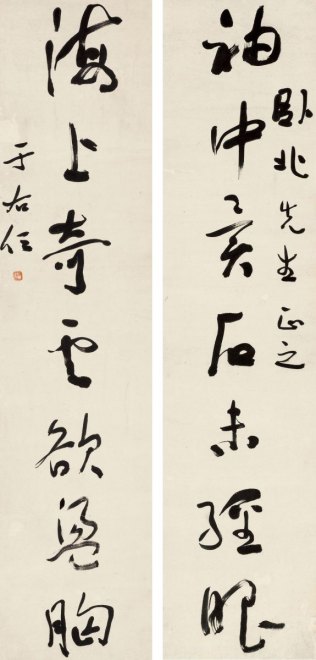 袖中異石未經眼
卧北先生正之
海上奇雲欲盪胸
于右任